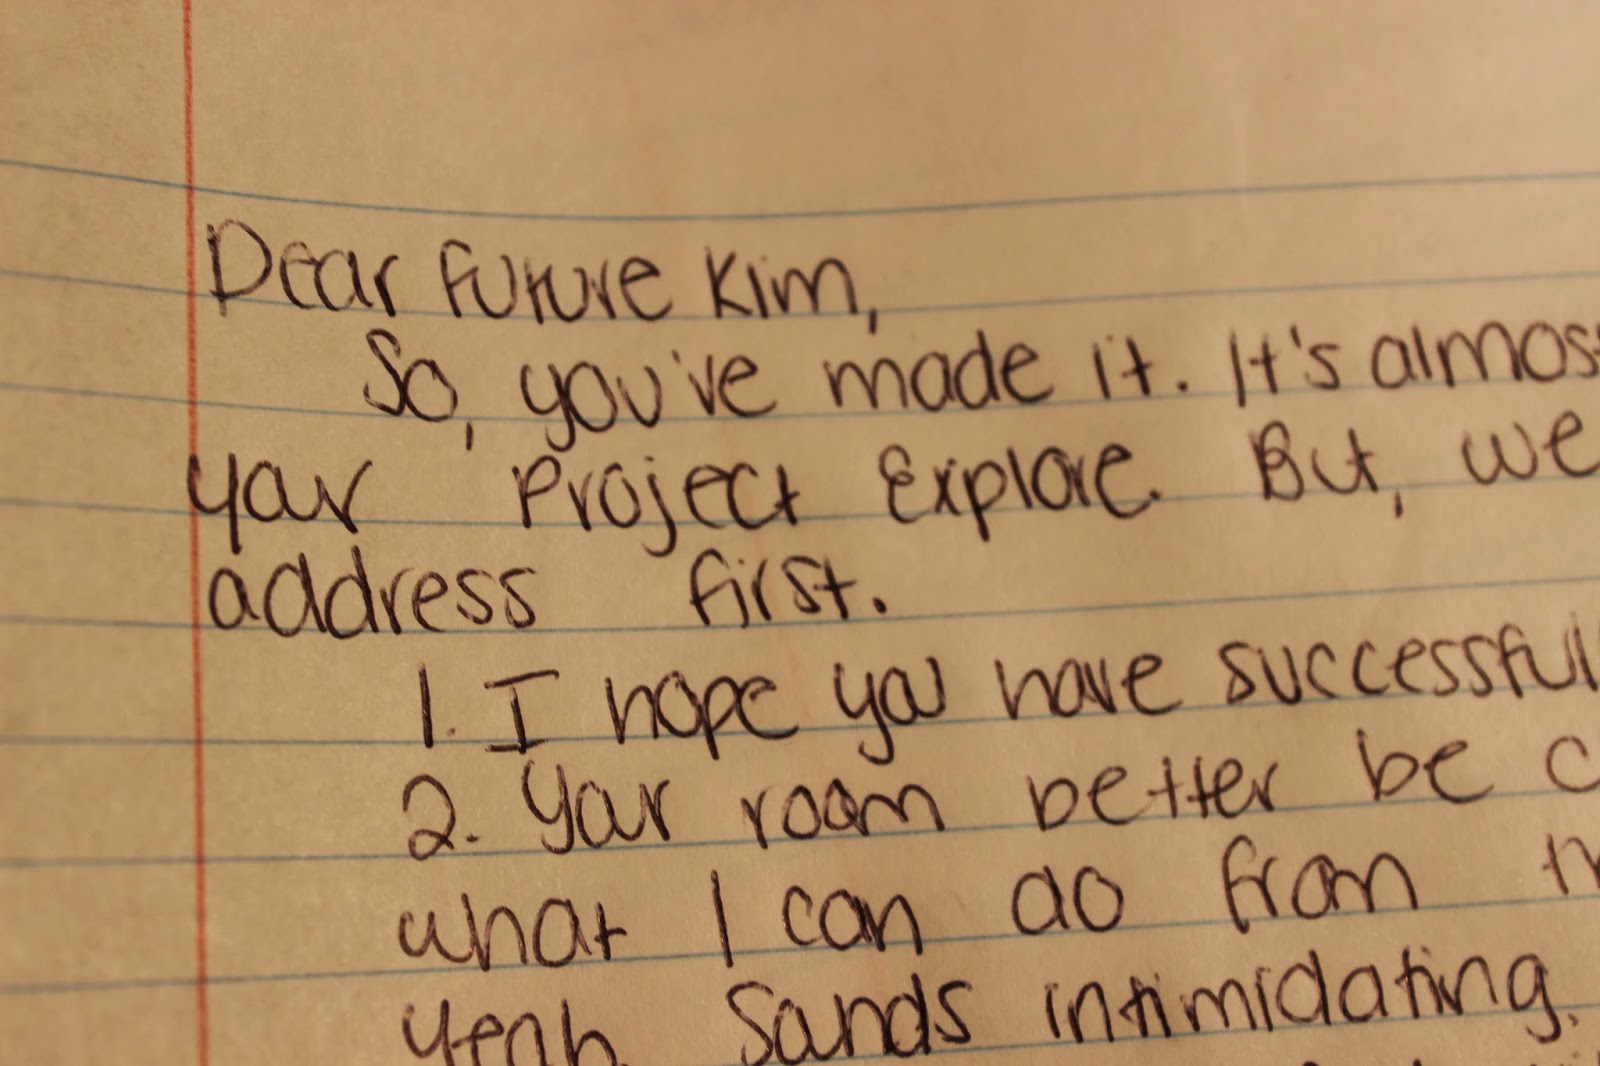 Dear future Kim,
So, you've made it. It's almost
your Project Explore. But, we
address first.
1. I hope you have successful
2. Your room better be c
what I can do from
yeah. Sounds intimidating.